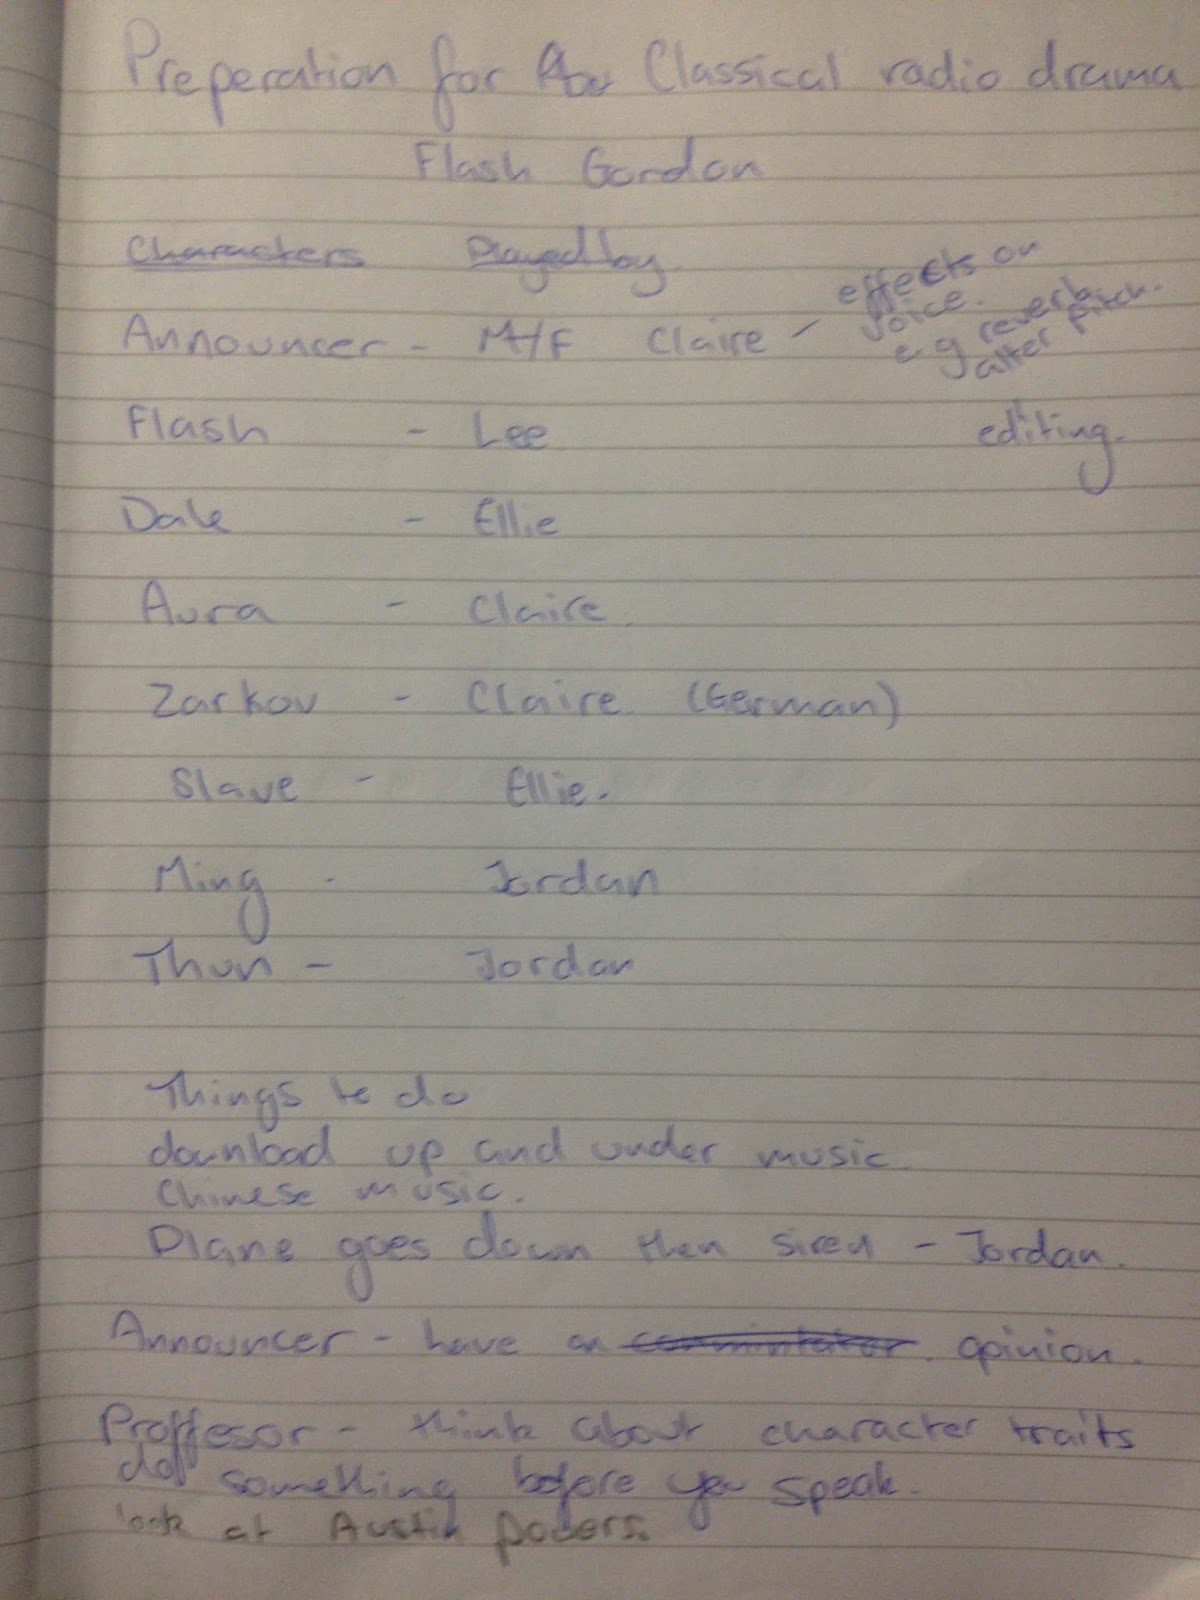 Preperation for Classical radio drama
Flash Gordon
Characters Played by
Announcer - M/F Claire - effects on
voice.
e.g reverb.
alter pitch.
Flash - Lee editing.
Dale - Ellie
Aura - Claire.
Zarkov - Claire (German)
Slave - Ellie.
Ming - Jordan
Thun - Jordan
Things to do
download up and under music.
Chinese music.
Plane goes down then siren - Jordan.
Announcer - have an opinion.
Proffesor - think about character traits
do something before you speak.
look at Austin powers.